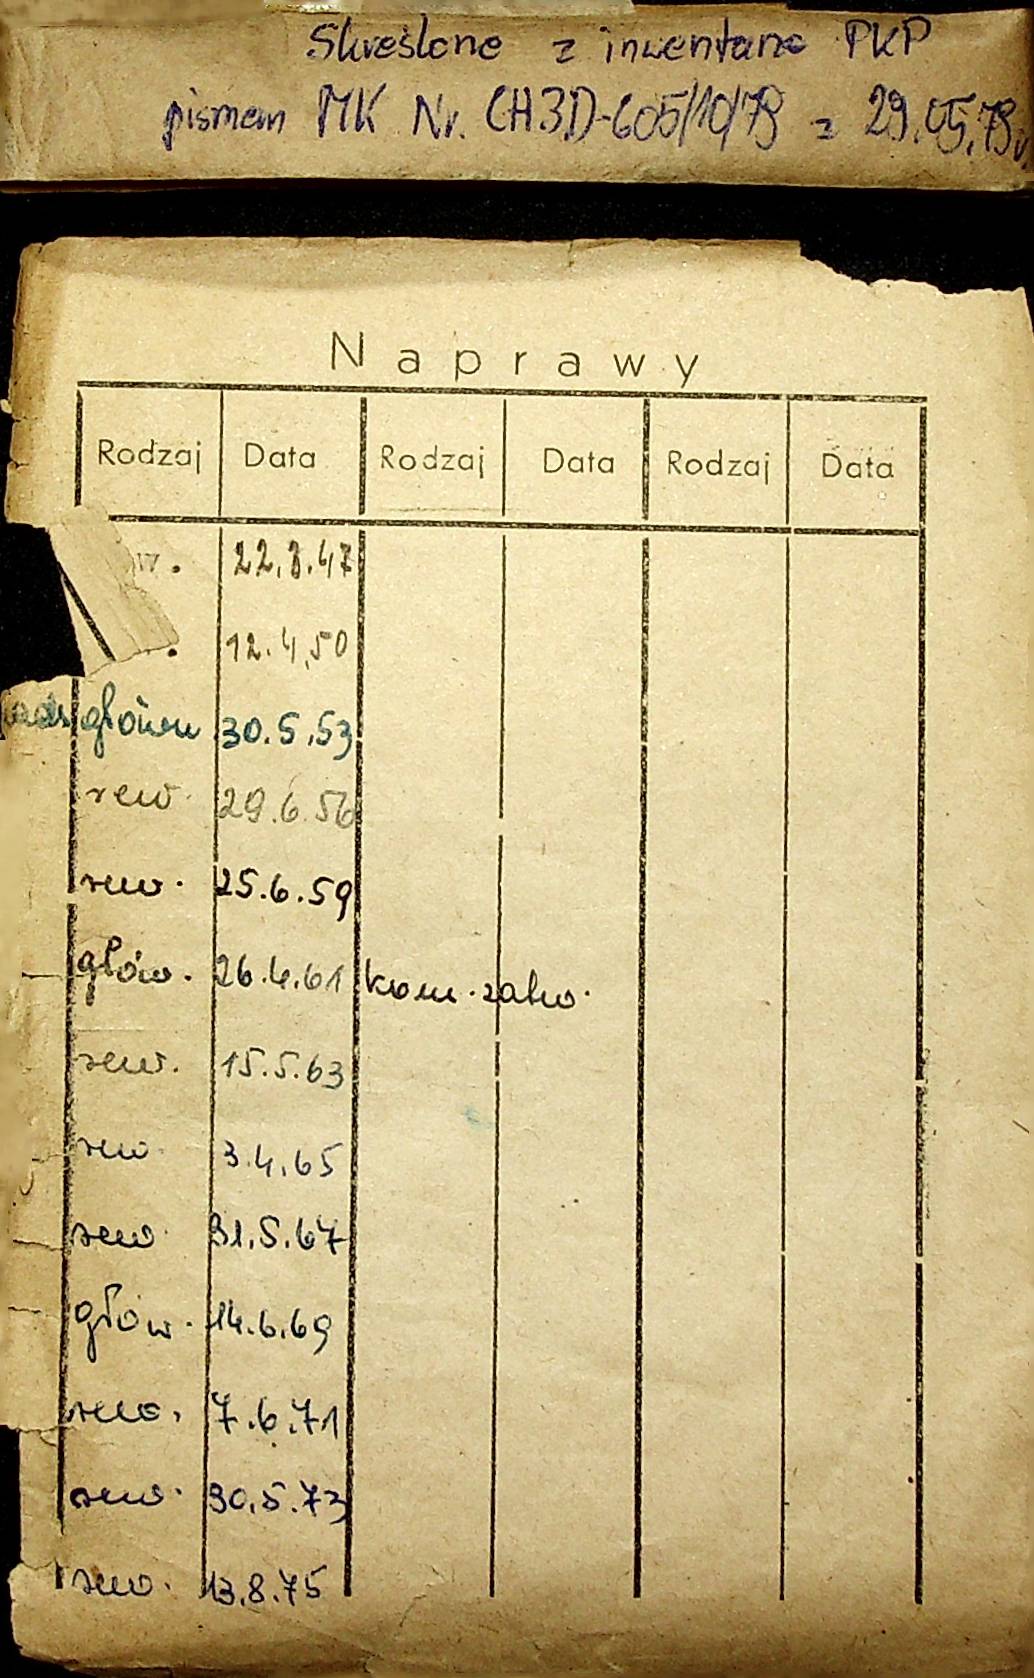 Skreślone z inwentarza PKP
pismem MK Nr. CH3D-605/10/79 z 29.05.79r
Naprawy
Rodzaj Data Rodzaj Data Rodzaj Data
w. 22.8.47
. 12.4.50
główn 30.5.53
rew. 29.6.56
rew. 25.6.59
głów. 26.4.61 kom. zakw.
rew. 15.5.63
rew. 3.4.65
rew. 31.5.67
głów. 14.6.69
rew. 7.6.71
rew. 30.5.73
rew. 13.8.75